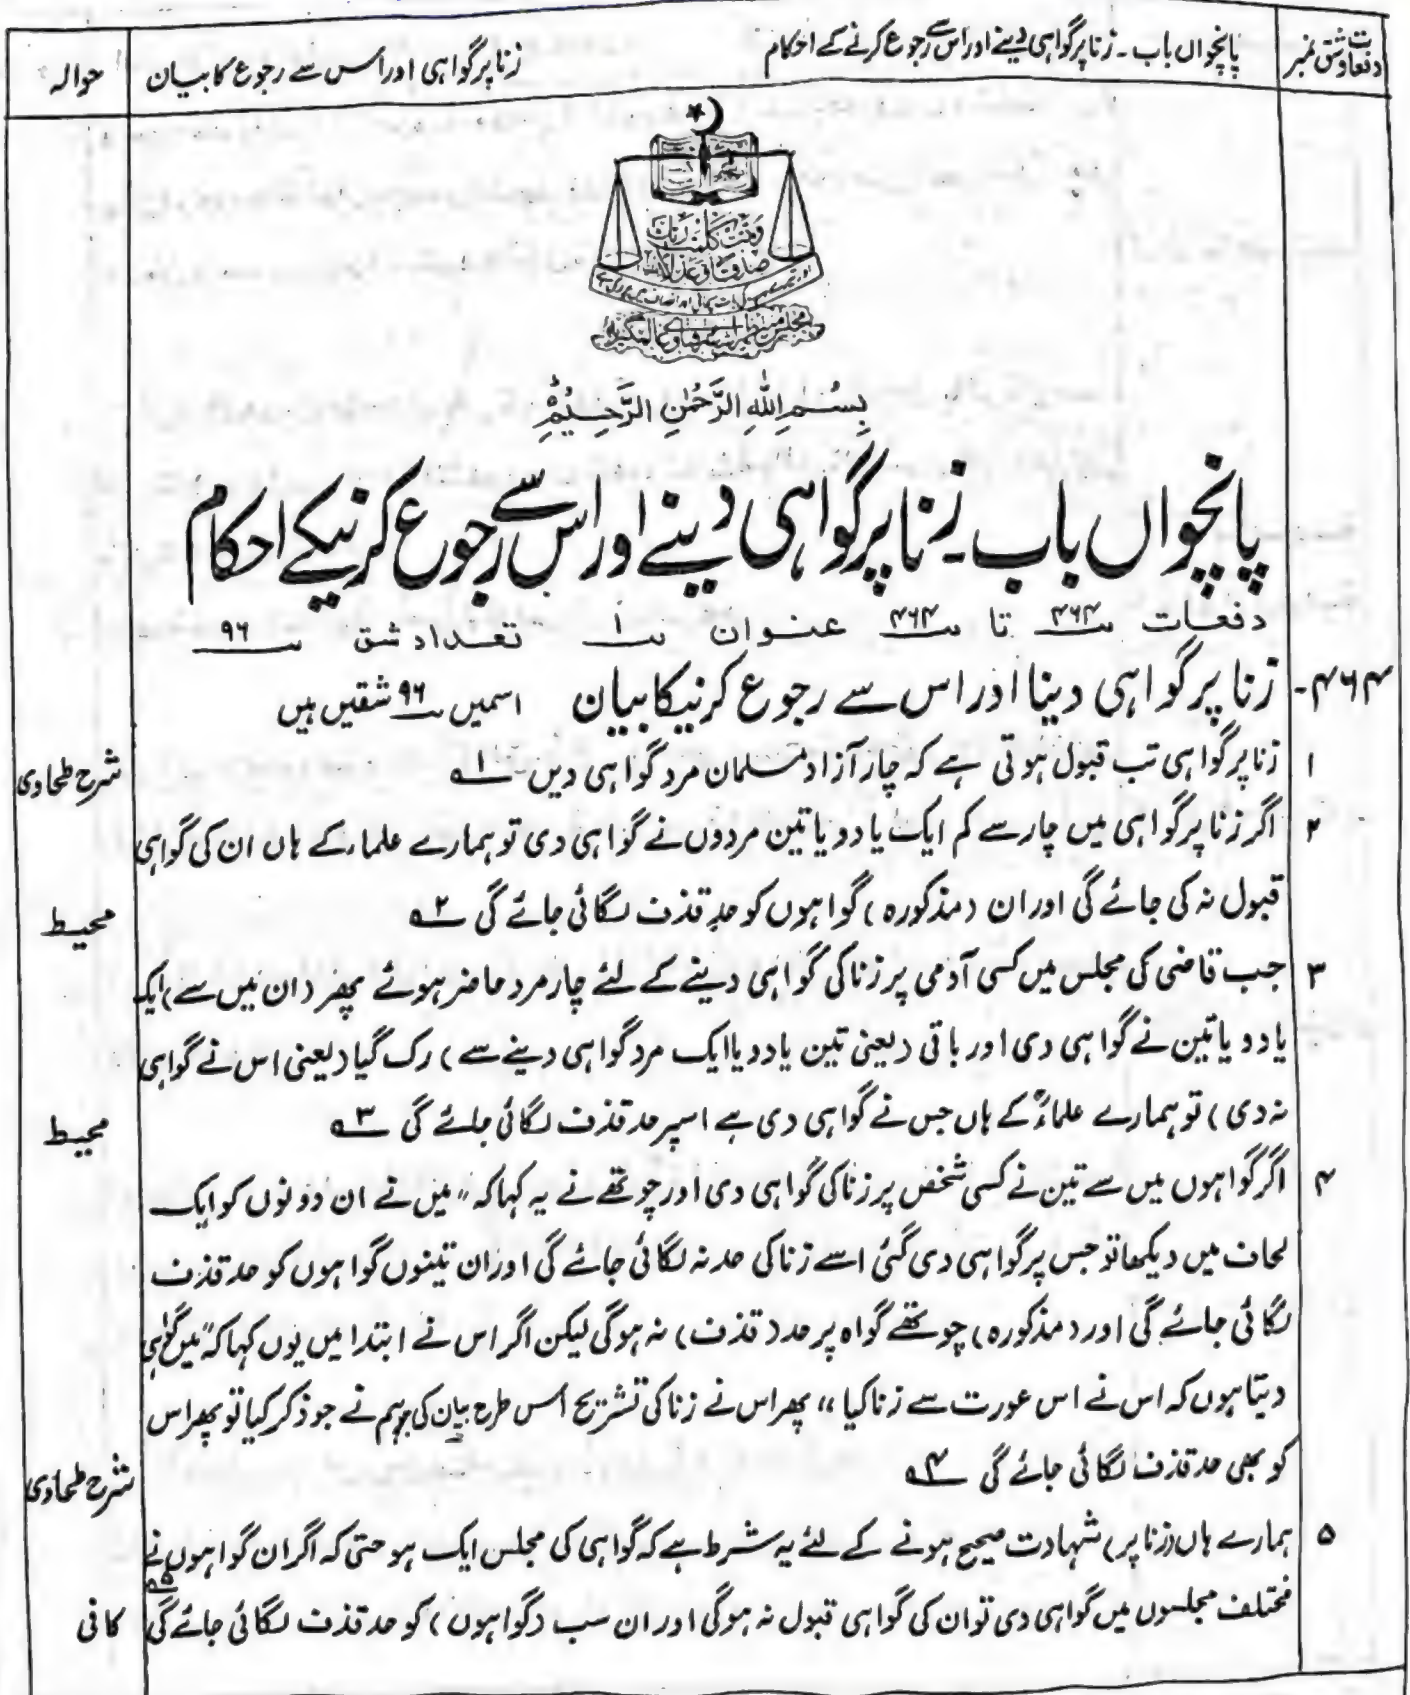 دفعات وشق نمبر
پانچواں باب ۔ زنا پر گواہی دینے اور اس سے رجوع کرنے کے احکام
زنا پر گواہی اور اس سے رجوع کا بیان
حوالہ
وتمت کلمت ربک
صدقا وعدلا
بِسْمِ اللّٰهِ الرَّحْمٰنِ الرَّحِيْمِ
پانچواں باب ۔ زنا پر گواہی دینے اور اس سے رجوع کرنیکے احکام
دفعات ۴۶۴ تا ۴۶۴ عنوان ۱ تعداد شق ۹۶
۴۶۴- زنا پر گواہی دینا اور اس سے رجوع کرنیکا بیان اسمیں ۹۶ شقیں ہیں
۱ زنا پر گواہی تب قبول ہوتی ہے کہ چار آزاد مسلمان مرد گواہی دیں ۱ شرح طحاوی
۲ اگر زنا پر گواہی میں چار سے کم ایک یا دو یا تین مردوں نے گواہی دی تو ہمارے علماء کے ہاں ان کی گواہی
قبول نہ کی جائے گی اور ان (مذکورہ) گواہوں کو حد قذف لگائی جائے گی ۲ محیط
۳ جب قاضی کی مجلس میں کسی آدمی پر زنا کی گواہی دینے کے لئے چار مرد حاضر ہوئے پھر (ان میں سے) ایک
یا دو یا تین نے گواہی دی اور باقی (یعنی تین یا دو یا ایک مرد گواہی دینے سے) رک گیا (یعنی اس نے گواہی
نہ دی) تو ہمارے علماءؒ کے ہاں جس نے گواہی دی ہے اسپر حد قذف لگائی جائے گی ۳ محیط
۴ اگر گواہوں میں سے تین نے کسی شخص پر زنا کی گواہی دی اور چوتھے نے یہ کہا کہ "میں نے ان دونوں کو ایک
لحاف میں دیکھا تو جس پر گواہی دی گئی اسے زنا کی حد نہ لگائی جائے گی اور ان تینوں گواہوں کو حد قذف
لگائی جائے گی اور (مذکورہ) چوتھے گواہ پر حد (قذف) نہ ہوگی لیکن اگر اس نے ابتدا میں یوں کہا کہ "میں گواہی
دیتا ہوں کہ اس نے اس عورت سے زنا کیا" پھر اس نے زنا کی تشریح اس طرح بیان کی جو ہم نے جو ذکر کیا تو پھر اس
کو بھی حد قذف لگائی جائے گی ۴ شرح طحاوی
۵ ہمارے ہاں (زنا پر) شہادت صحیح ہونے کے لئے یہ شرط ہے کہ گواہی کی مجلس ایک ہو حتی کہ اگر ان گواہوں نے
مختلف مجلسوں میں گواہی دی تو ان کی گواہی قبول نہ ہوگی اور ان سب (گواہوں) کو حد قذف لگائی جائے گی ۵ کافی